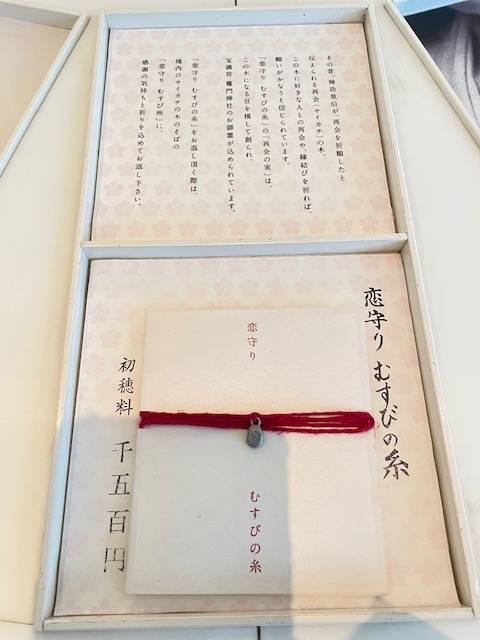 その昔、神功皇后が再会を祈願したと
伝えられる再会(サイカチ)の木。
この木に好きな人との再会や、縁結びを祈れば、
願いがかなうと信じられています。
「恋守り むすびの糸」の「再会の実」は、
この木になる豆を模して創られ、
宝満宮 竈門神社のお御霊が込められています。
「恋守り むすびの糸」をお返し頂く際は、
境内のサイカチの木のそばの
「恋守り むすび所」に、
感謝の気持ちと祈りを込めてお返し下さい。
恋守り むすびの糸
恋守り
むすびの糸
初穂料 千五百円